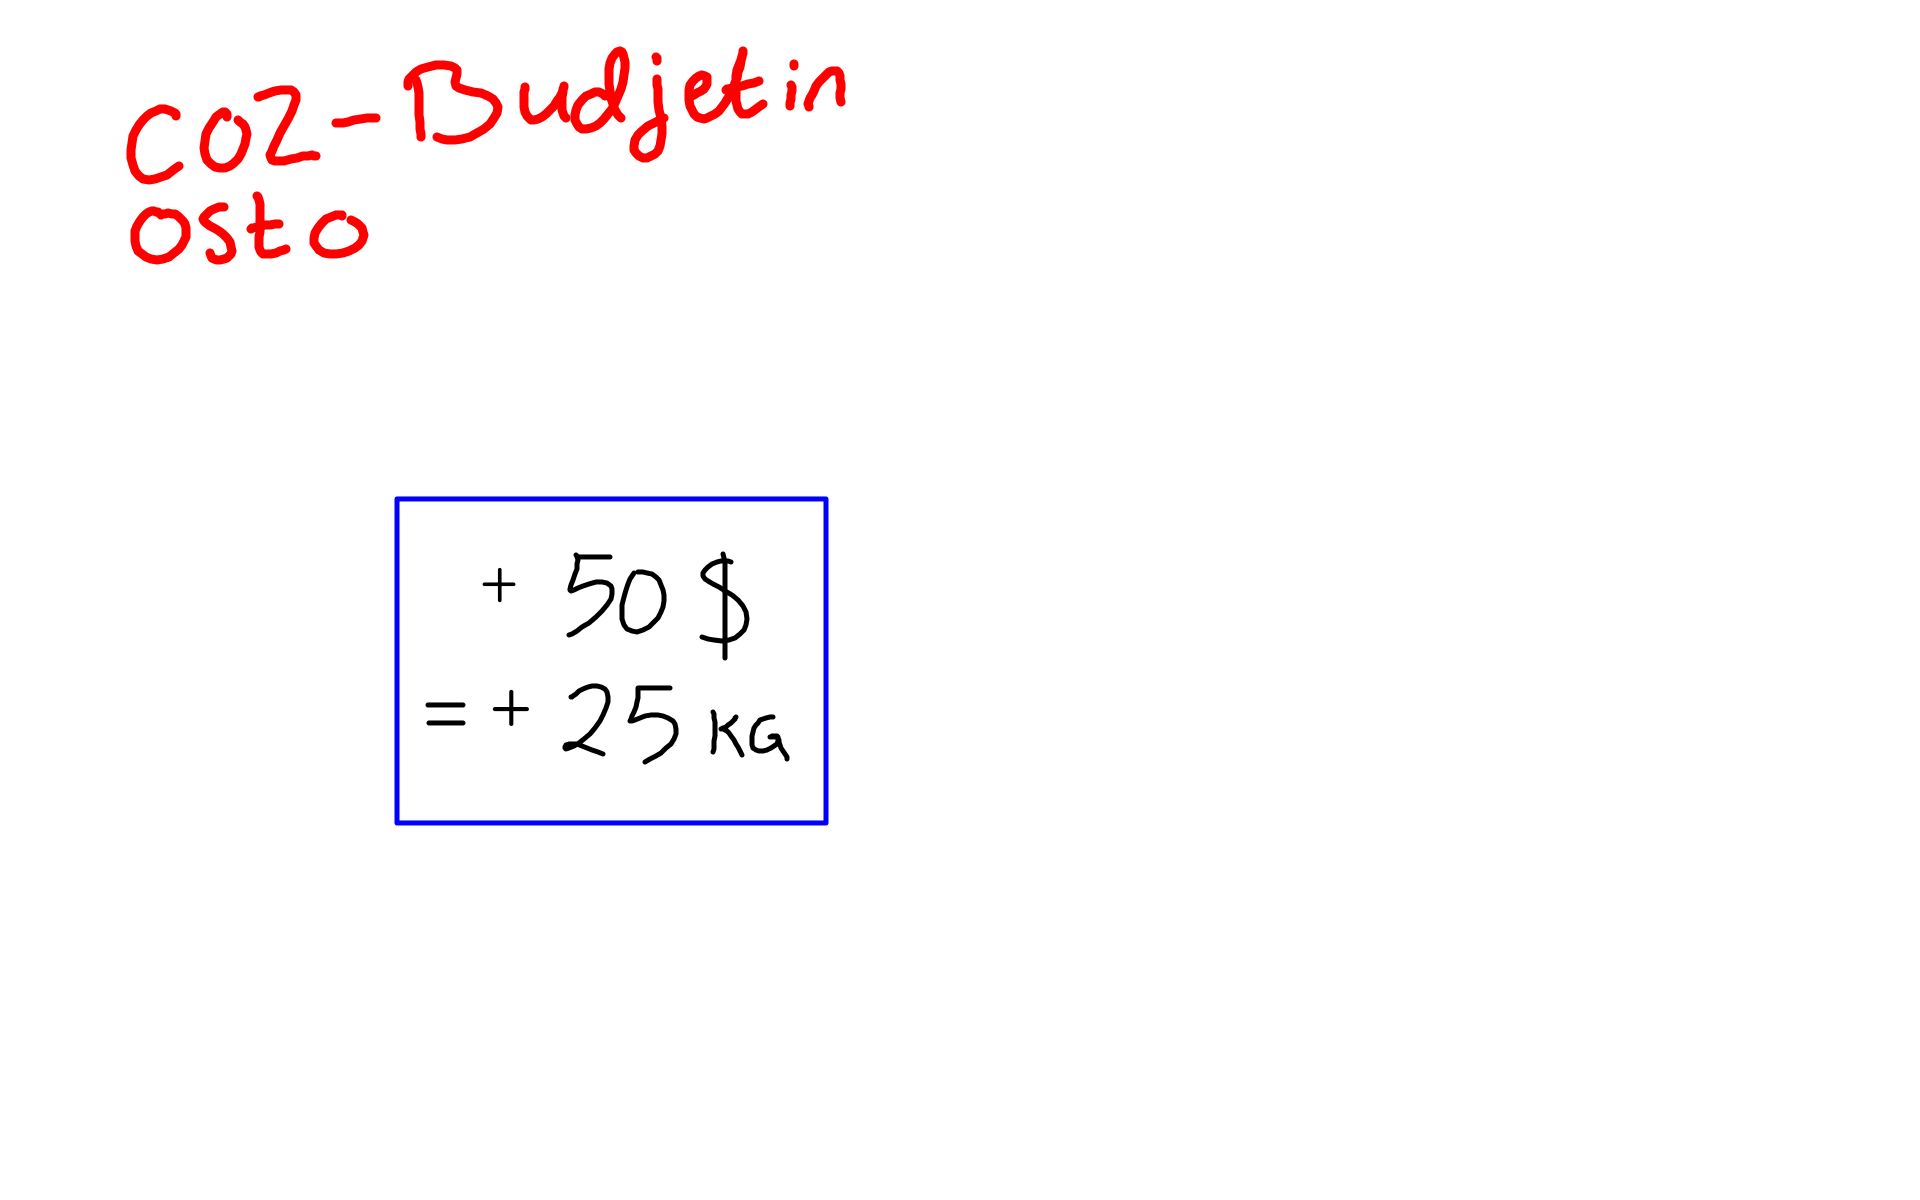 CO2-Budjetin
osto
+ 50 $
= + 25 KG